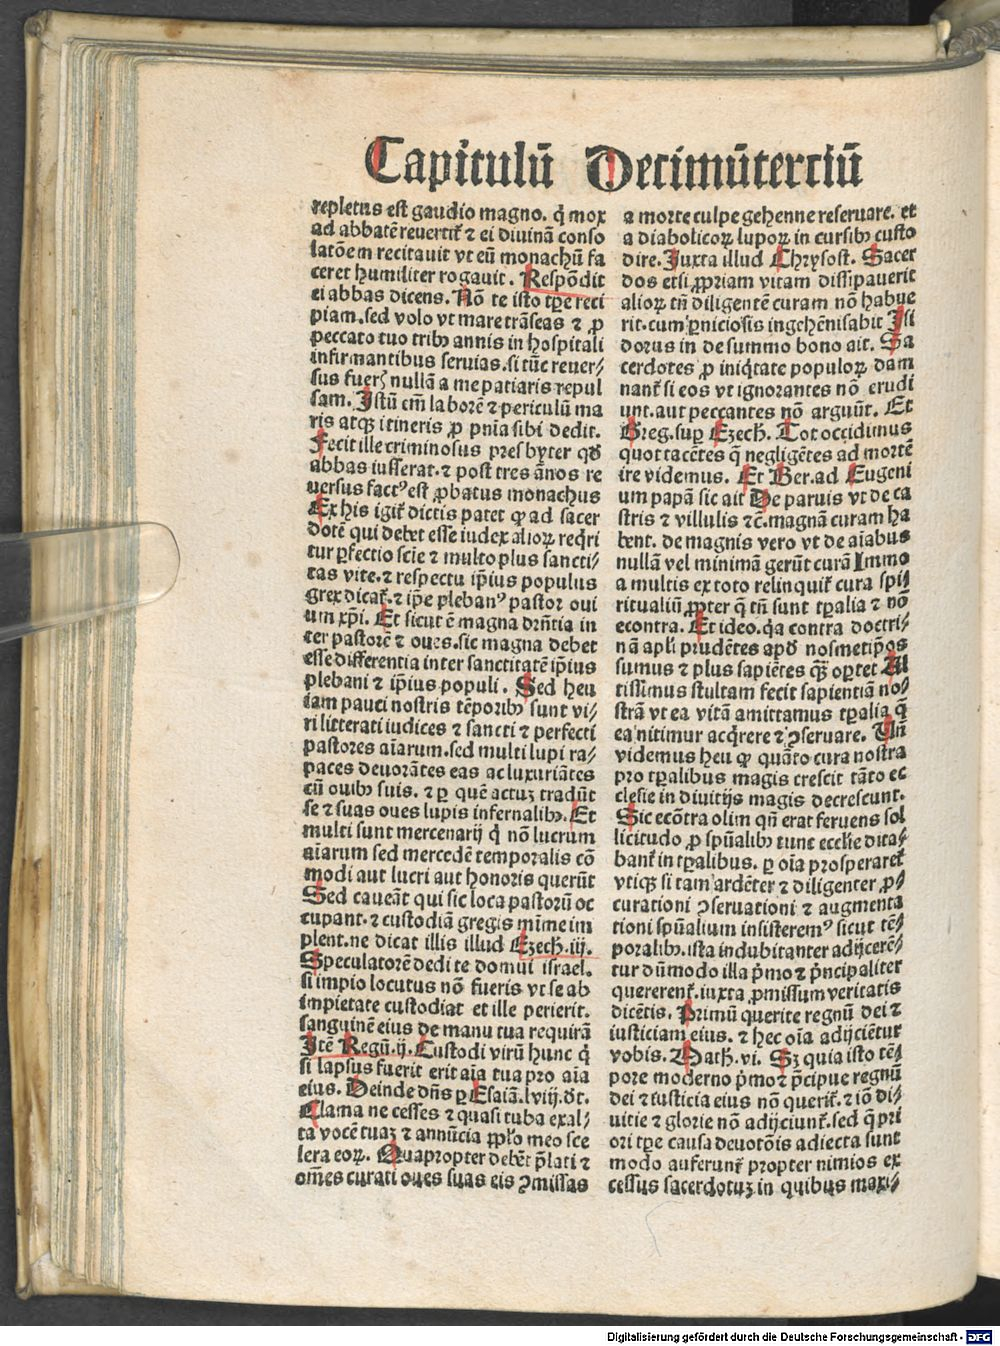 Capitulū Decimūterciū
repletus est gaudio magno. q̄ mox
ad abbatē revertit̄ ⁊ ei divinā conso
latōem recitavit vt eū monachū fa
ceret humiliter rogavit. Respōdit
ei abbas dicens. Nō te isto tp̄e reci
piam. sed volo vt mare trāseas ⁊ ꝓ
peccato tuo tribꝫ annis in hospitali
infirmantibus seruias. si tūc reuer⸗
sus fuerꝭ nullā a me patiaris repul
sam. Istū cm̄ laborē ⁊ periculū ma
ris atqꝫ itineris ꝓ pn̄ia sibi dedit.
Fecit ille criminosus presbyter qd̄
abbas iusserat. ⁊ post tres ānos re
uersus factꝰ est ꝓbatus monachus
Ex his igit̄ dictis patet ꝙ ad sacer
dotē qui debet esse iudex alioꝝ req̄ri
tur ꝑfectio scīe ⁊ multo plus sancti⸗
tas vite. ⁊ respectu ip̄ius populus
grex dicat̄. ⁊ ip̄e plebanꝰ pastor oui
um xp̄i. Et sicut ē magna dr̄ntia in
ter pastorē ⁊ oues. sic magna debet
esse differentia inter sanctitatē ip̄ius
plebani ⁊ ip̄ius populi. Sed heu
iam pauci nostris tēporibꝫ sunt vi⸗
ri litterati iudices ⁊ sancti ⁊ perfecti
pastores aīarum. sed multi lupi ra⸗
paces deuorātes eas ac luxuriātes
cū ouibꝫ suis. ⁊ ꝑ quē actuꝫ tradūt
se ⁊ suas oues lupis infernalibꝫ. Et
multi sunt mercenarij q̄ nō lucrum
aīarum sed mercedē temporalis cō
modi aut lucri aut honoris querūt
Sed caueāt qui sic loca pastorū oc
cupant. ⁊ custodiā gregis mīme im
plent. ne dicat illis illud Ezech. iij.
Speculatorē dedi te domui israel.
si impio locutus nō fueris vt se ab
impietate custodiat et ille perierit.
sanguinē eius de manu tua requirā
Itē Regū. ij. Custodi virū hunc q̄
si lapsus fuerit erit aīa tua pro aīa
eius. Deinde dn̄s ꝑ Esaiā. lviij. dt.
Clama ne cesses ⁊ quasi tuba exal⸗
ta vocē tuaꝫ ⁊ annūcia ꝓpl̄o meo sce
lera eoꝝ. Quapropter debēt p̄lati ⁊
om̄es curati oues suas eis ꝯmissas
a morte culpe gehenne reseruare. et
a diabolicoꝝ lupoꝝ in cursibꝫ custo
dire. Iuxta illud Chrysost. Sacer
dos etsi ꝓpriam vitam dissipauerit
alioꝝ tn̄ diligentē curam nō habue
rit. cum ꝑniciosis in gehēnis abit Isi
dorus in de summo bono ait. Sa
cerdotes ꝓ iniq̄tate populoꝝ dam
nant̄ si eos vt ignorantes nō erudi
unt. aut peccantes nō arguūt. Et
Greg. suꝑ Ezech. Tot occidimus
quot tacētes q̄ negligētes ad mortē
ire videmus. Et Ber. ad Eugeni
um papā sic ait De paruis vt de ca
stris ⁊ villulis ⁊c̄. magnā curam ha
bent. de magnis vero vt de aīabus
nullā vel minimā gerūt curā Immo
a multis ex toto relinquit̄ cura spi⸗
ritualiū ꝓpter q̄ tn̄ sunt tp̄alia ⁊ nō
econtra. Et ideo. q̄a contra doctri⸗
nā apl̄i prudētes apd̄ nosmetip̄os
sumus ⁊ plus sapiētes qꝫ̄ oꝑtet Al
tissimus stultam fecit sapientiā no⸗
strā vt ea vitā amittamus tp̄alia q̄
ea nitimur acq̄rere ⁊ ꝯseruare. Vn̄
videmus heu ꝙ quāto cura nostra
pro tp̄alibus magis crescit tāto ec
clesie in diuitijs magis decrescunt.
Sic ecōtra olim qn̄ erat feruens sol
licitudo ꝓ spūalibꝫ tunc ecclīe dita⸗
bant̄ in tp̄alibus. ꝑ oīa prosperaret̄
vtiqꝫ si tam ardēter ⁊ diligenter ꝓ⸗
curationi ꝯseruationi ⁊ augmenta
tioni spūalium insisteremꝰ sicut tē⸗
poralibꝫ. ista indubitanter adijcerē⸗
tur dūmodo illa p̄mo ⁊ p̄ncipaliter
quererent̄. iuxta ꝓmissum veritatis
dicētis. Primū querite regnū dei ⁊
iusticiam eius. ⁊ hec oīa adijciētur
vobis. Math. vi. Sꝫ quia isto tē⸗
pore moderno p̄mo ⁊ p̄cipue regnū
dei ⁊ iusticia eius nō querit̄. ⁊ iō di⸗
uitie ⁊ glorie nō adijciunt̄. sed q̄ pri
ori tp̄e causa deuotōis adiecta sunt
modo auferunt̄ propter nimios ex
cessus sacerdotuꝫ in quibus maxi⸗
Digitalisierung gefördert durch die Deutsche Forschungsgemeinschaft - DFG